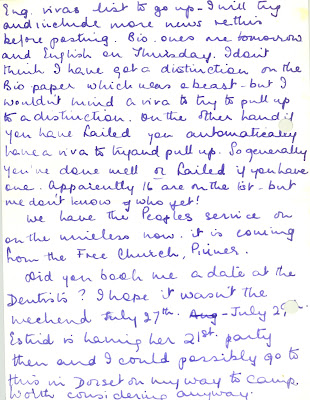 Eng. vivas list to go up - I will try
and include more news re this
before posting. Bio. ones are tomorrow
and English on Thursday. I don't
think I have got a distinction on the
Bio paper which was a beast - but I
wouldn't mind a viva to try to pull up
to a distinction. On the other hand if
you have failed you automatically
have a viva to try and pull up. So generally
you've done well or failed if you have
one. Apparently 16 are on the list - but
we don't know who yet!
We have the Peoples service on
on the wireless now. it is coming
from the Free Church, Pinner.
Did you book me a date at the
Dentists? I hope it wasn't the
weekend July 27th. Aug - July 2
Estrid is having her 21st. party
then and I could possibly go to
this in Dorset on my way to camp.
Worth considering anyway.